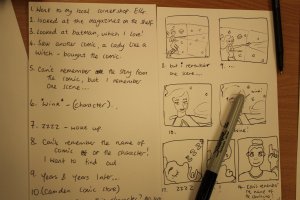 1. Went to my local corner shop
2. looked at the magazines on the shelf
3. Looked at batman, which I love!
4. Saw another comic, a lady like a
witch - bought the comic.
5. Can't remember the story from
the comic, but I remember
one scene...
6. *wink* - (character).
7. ZZZZ - woke up.
8. Can't remember the name of
comic or the character!
I want to find out
9. Years & Years later...
10. (Camden comic store)
8. but I remember
one scene...
9. ...
10.
12. ZZZZ
14. Can't remember
the name of
the